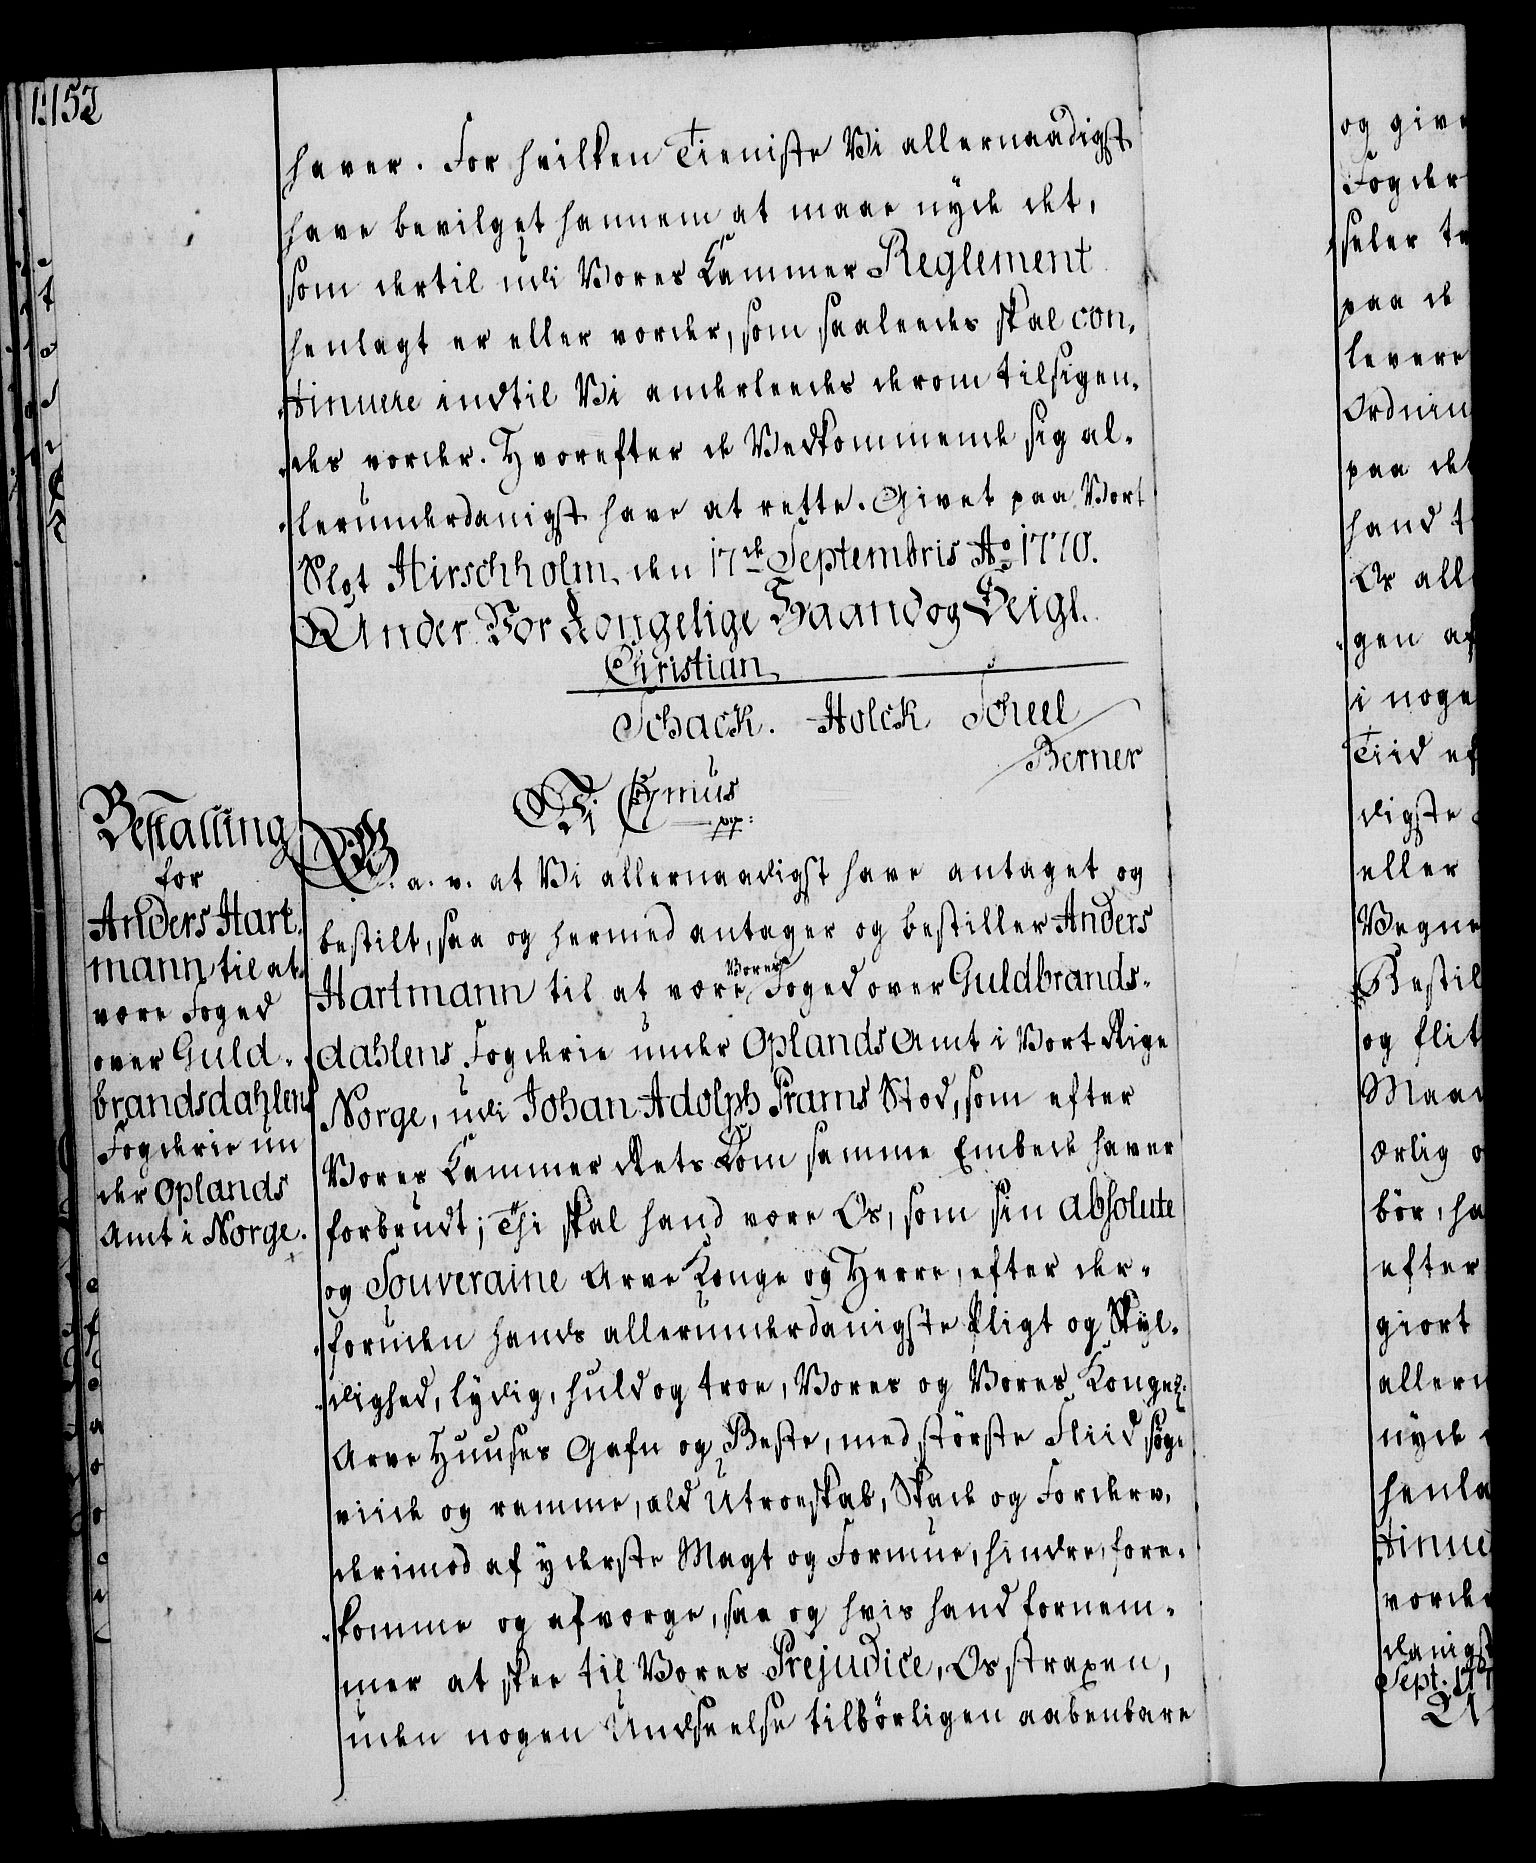 1152
haver. For hvilken Tieniste Vi allernaadigst
have bevilget hannem at maae nyde det,
som dertil udi Vores Kammer Reglement
henlagt er eller vorder, som saaleedes skal con-
tinuere indtil Vi anderleedes derom tilsigen-
des vorder. Hvorefter de Vedkommende sig al-
lerunderdanigst have at rette. Givet paa Vort
Slot Hirschholm den 17de Septembris Ao 1770.
Under Vor Kongelige Haand og Seigl.
Christian
Schack. Holck Scheel
Berner
Bestalling
for
Anders Hart-
mann til at
være Foged
over Guld-
brandsdahlens
Fogderie un
der Oplands
Amt i Norge.
Vi C 7mus
pp:
G. a. v. at Vi allernaadigst have antaget og
bestilt, saa og hermed antager og bestiller Anders
Hartmann til at være Vores Foged over Guldbrands-
dahlens Fogderie under Oplands Amt i Vort Rige
Norge, udi Johan Adolph Prams Sted, som efter
Vores Kammer Rets Dom samme Embede haver
forbrudt; Thi skal hand være Os, som sin absolute
og Souveraine Arve Konge og Herre, efter der-
foruden hands allerunderdanigste Pligt og Skyl-
dighed, lydig, huld og troe, Vores og Vores Kongel:
Arve Huuses Gafn og Beste, med største Fliid søge
viide og ramme, ald Utroeskab, Skade og Forderv,
derimod af yderste Magt og Formue, hindre, fore-
komme og afværge, saa og hvis hand fornem-
mer at skee til Vores Prejudice, Os straxen,
uden nogen Undseelse tilbørligen aabenbare
og give
Fogder
seler
paa de
levere
Ordnin
paa det
hand
Os all
gen af
i noge
Tiid ef
digste
eller
Vegne
Bestil
og flit
Maan
ærlig o
bör, ha
efter
giort
allern
nyde
henla
tinue
vorde
danigst
Sept. 177
U